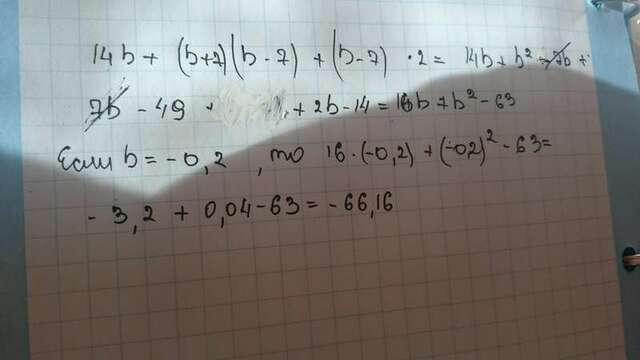 14b + (b+7)(b-7) + (b-7) · 2 = 14b + b² - 7b +
7b - 49 + 2b - 14 = 16b + b² - 63
Если b = -0,2, то 16·(-0,2) + (-02)² - 63 =
- 3,2 + 0,04 - 63 = - 66,16